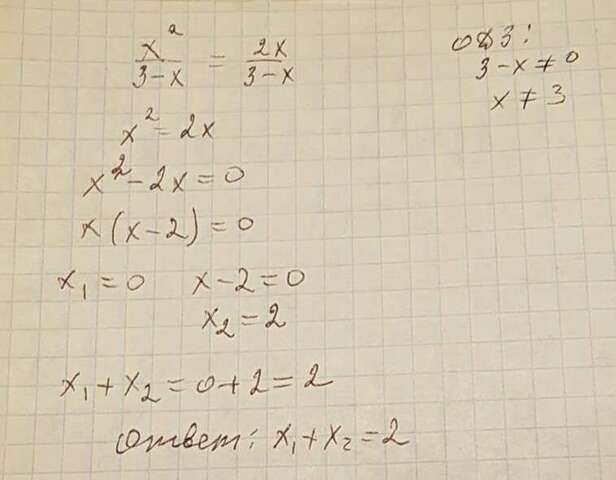 x²/(3-x) = 2x/(3-x)
ОДЗ:
3-x≠0
x≠3
x²=2x
x²-2x=0
x(x-2)=0
x₁=0 x-2=0
x₂=2
x₁+x₂=0+2=2
Ответ: x₁+x₂=2